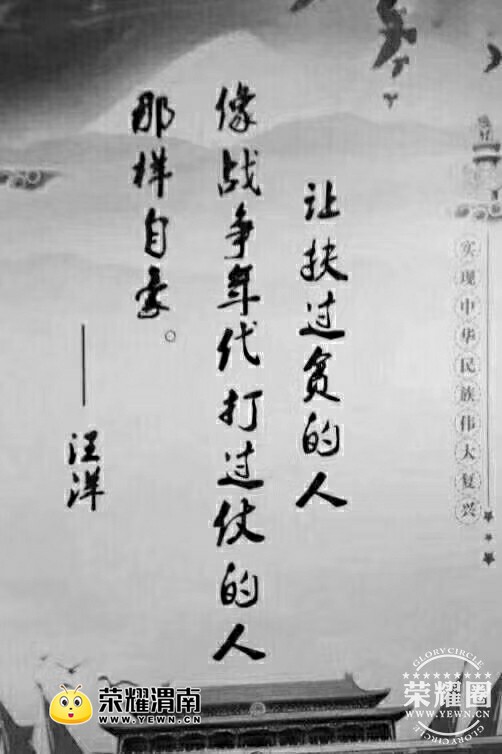 让扶过贫的人
像战争年代打过仗的人
那样自豪。
——汪洋
实现中华民族伟大复兴
荣耀渭南
WWW.YEWN.CN
GLORY CIRCLE
荣耀圈
WWW.YEWN.CN
GLORY CIRCLE